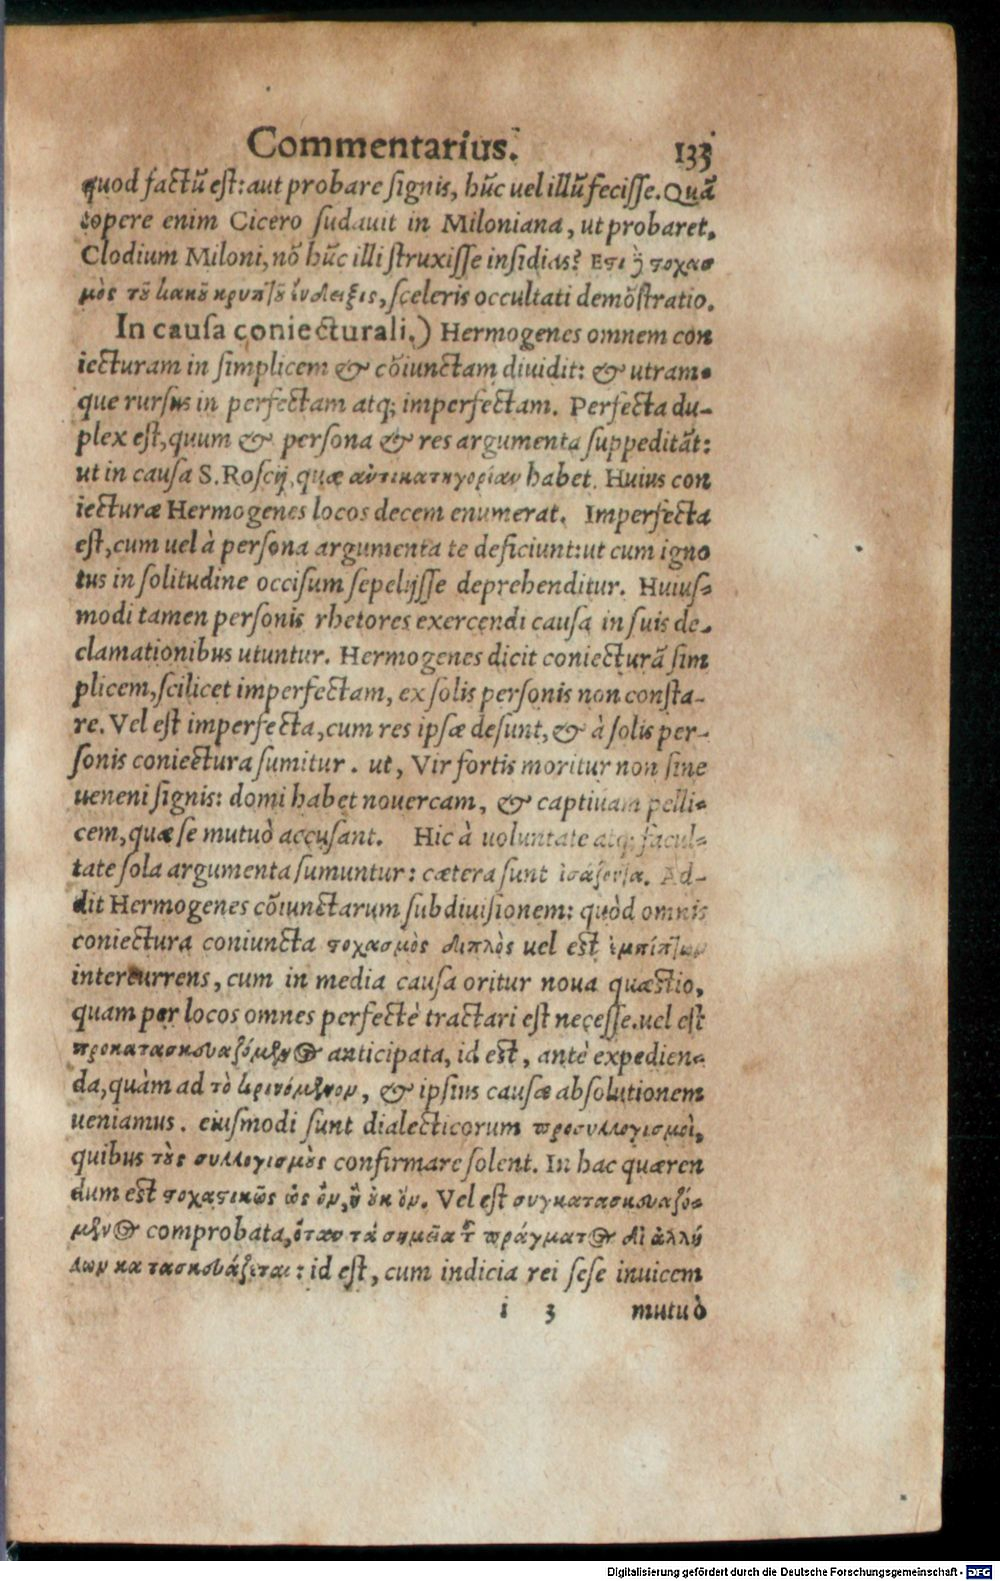 Commentarius. 133
quod factũ est: aut probare signis, hũc uel illũ fecisse. Quã
topere enim Cicero sudauit in Miloniana, ut probaret,
Clodium Miloni, nõ hũc illi struxisse insidias? Ἔστι ȷ̀ στοχασ
μὸς τοῦ κακοῦ κρυπτοῦ ἔνδειξις, sceleris occultati demõstratio.
In causa coniecturali.) Hermogenes omnem con
iecturam in simplicem & cõiunctam diuidit: & utram-
que rursus in perfectam atq; imperfectam. Perfecta du-
plex est, quum & persona & res argumenta suppeditãt:
ut in causa S. Roscij, quæ ἀντικατηγορίαν habet. Huius con
iecturæ Hermogenes locos decem enumerat. Imperfecta
est, cum uel à persona argumenta te deficiunt: ut cum igno
tus in solitudine occisum sepelijsse deprehenditur. Huius-
modi tamen personis rhetores exercendi causa in suis de-
clamationibus utuntur. Hermogenes dicit coniecturã sim
plicem, scilicet imperfectam, ex solis personis non consta-
re. Vel est imperfecta, cum res ipsæ desunt, & à solis per-
sonis coniectura sumitur. ut, Vir fortis moritur non sine
ueneni signis: domi habet nouercam, & captiuam pelli-
cem, quæ se mutuò accusant. Hic à uoluntate atq; facul-
tate sola argumenta sumuntur: cætera sunt ἰσάζοντα. Ad-
dit Hermogenes cõiunctarum subdiuisionem: quòd omnis
coniectura coniuncta στοχασμὸς διπλὸς uel est ἐμπίπτων
intercurrens, cum in media causa oritur noua quæstio,
quam per locos omnes perfectè tractari est necesse. uel est
προκατασκευαζόμενος anticipata, id est, antè expedien-
da, quàm ad τὸ κρινόμενον, & ipsius causæ absolutionem
ueniamus. eiusmodi sunt dialecticorum προσυλλογισμοὶ,
quibus τοὺς συλλογισμοὺς confirmare solent. In hac quæren
dum est στοχαστικῶς ὡς ὂν, ἢ οὐκ ὄν. Vel est συγκατασκευαζό-
μενος comprobata, ὅταν τὰ σημεῖα τοῦ πράγματος δι ἀλλή
λων κατασκευάζεται: id est, cum indicia rei sese inuicem
i 3 mutuò
Digitalisierung gefördert durch die Deutsche Forschungsgemeinschaft - DFG